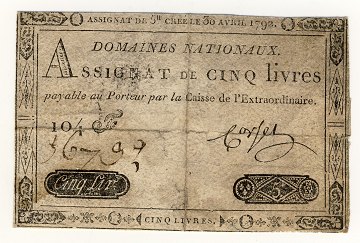 ASSIGNAT DE 5# CRÉE LE 30 AVRIL 1792.
DOMAINES NATIONAUX.
ASSIGNAT DE CINQ livres
payable au Porteur par la Caisse de l'Extraordinaire.
Corsel
Cinq Liv.
5
CINQ LIVRES.